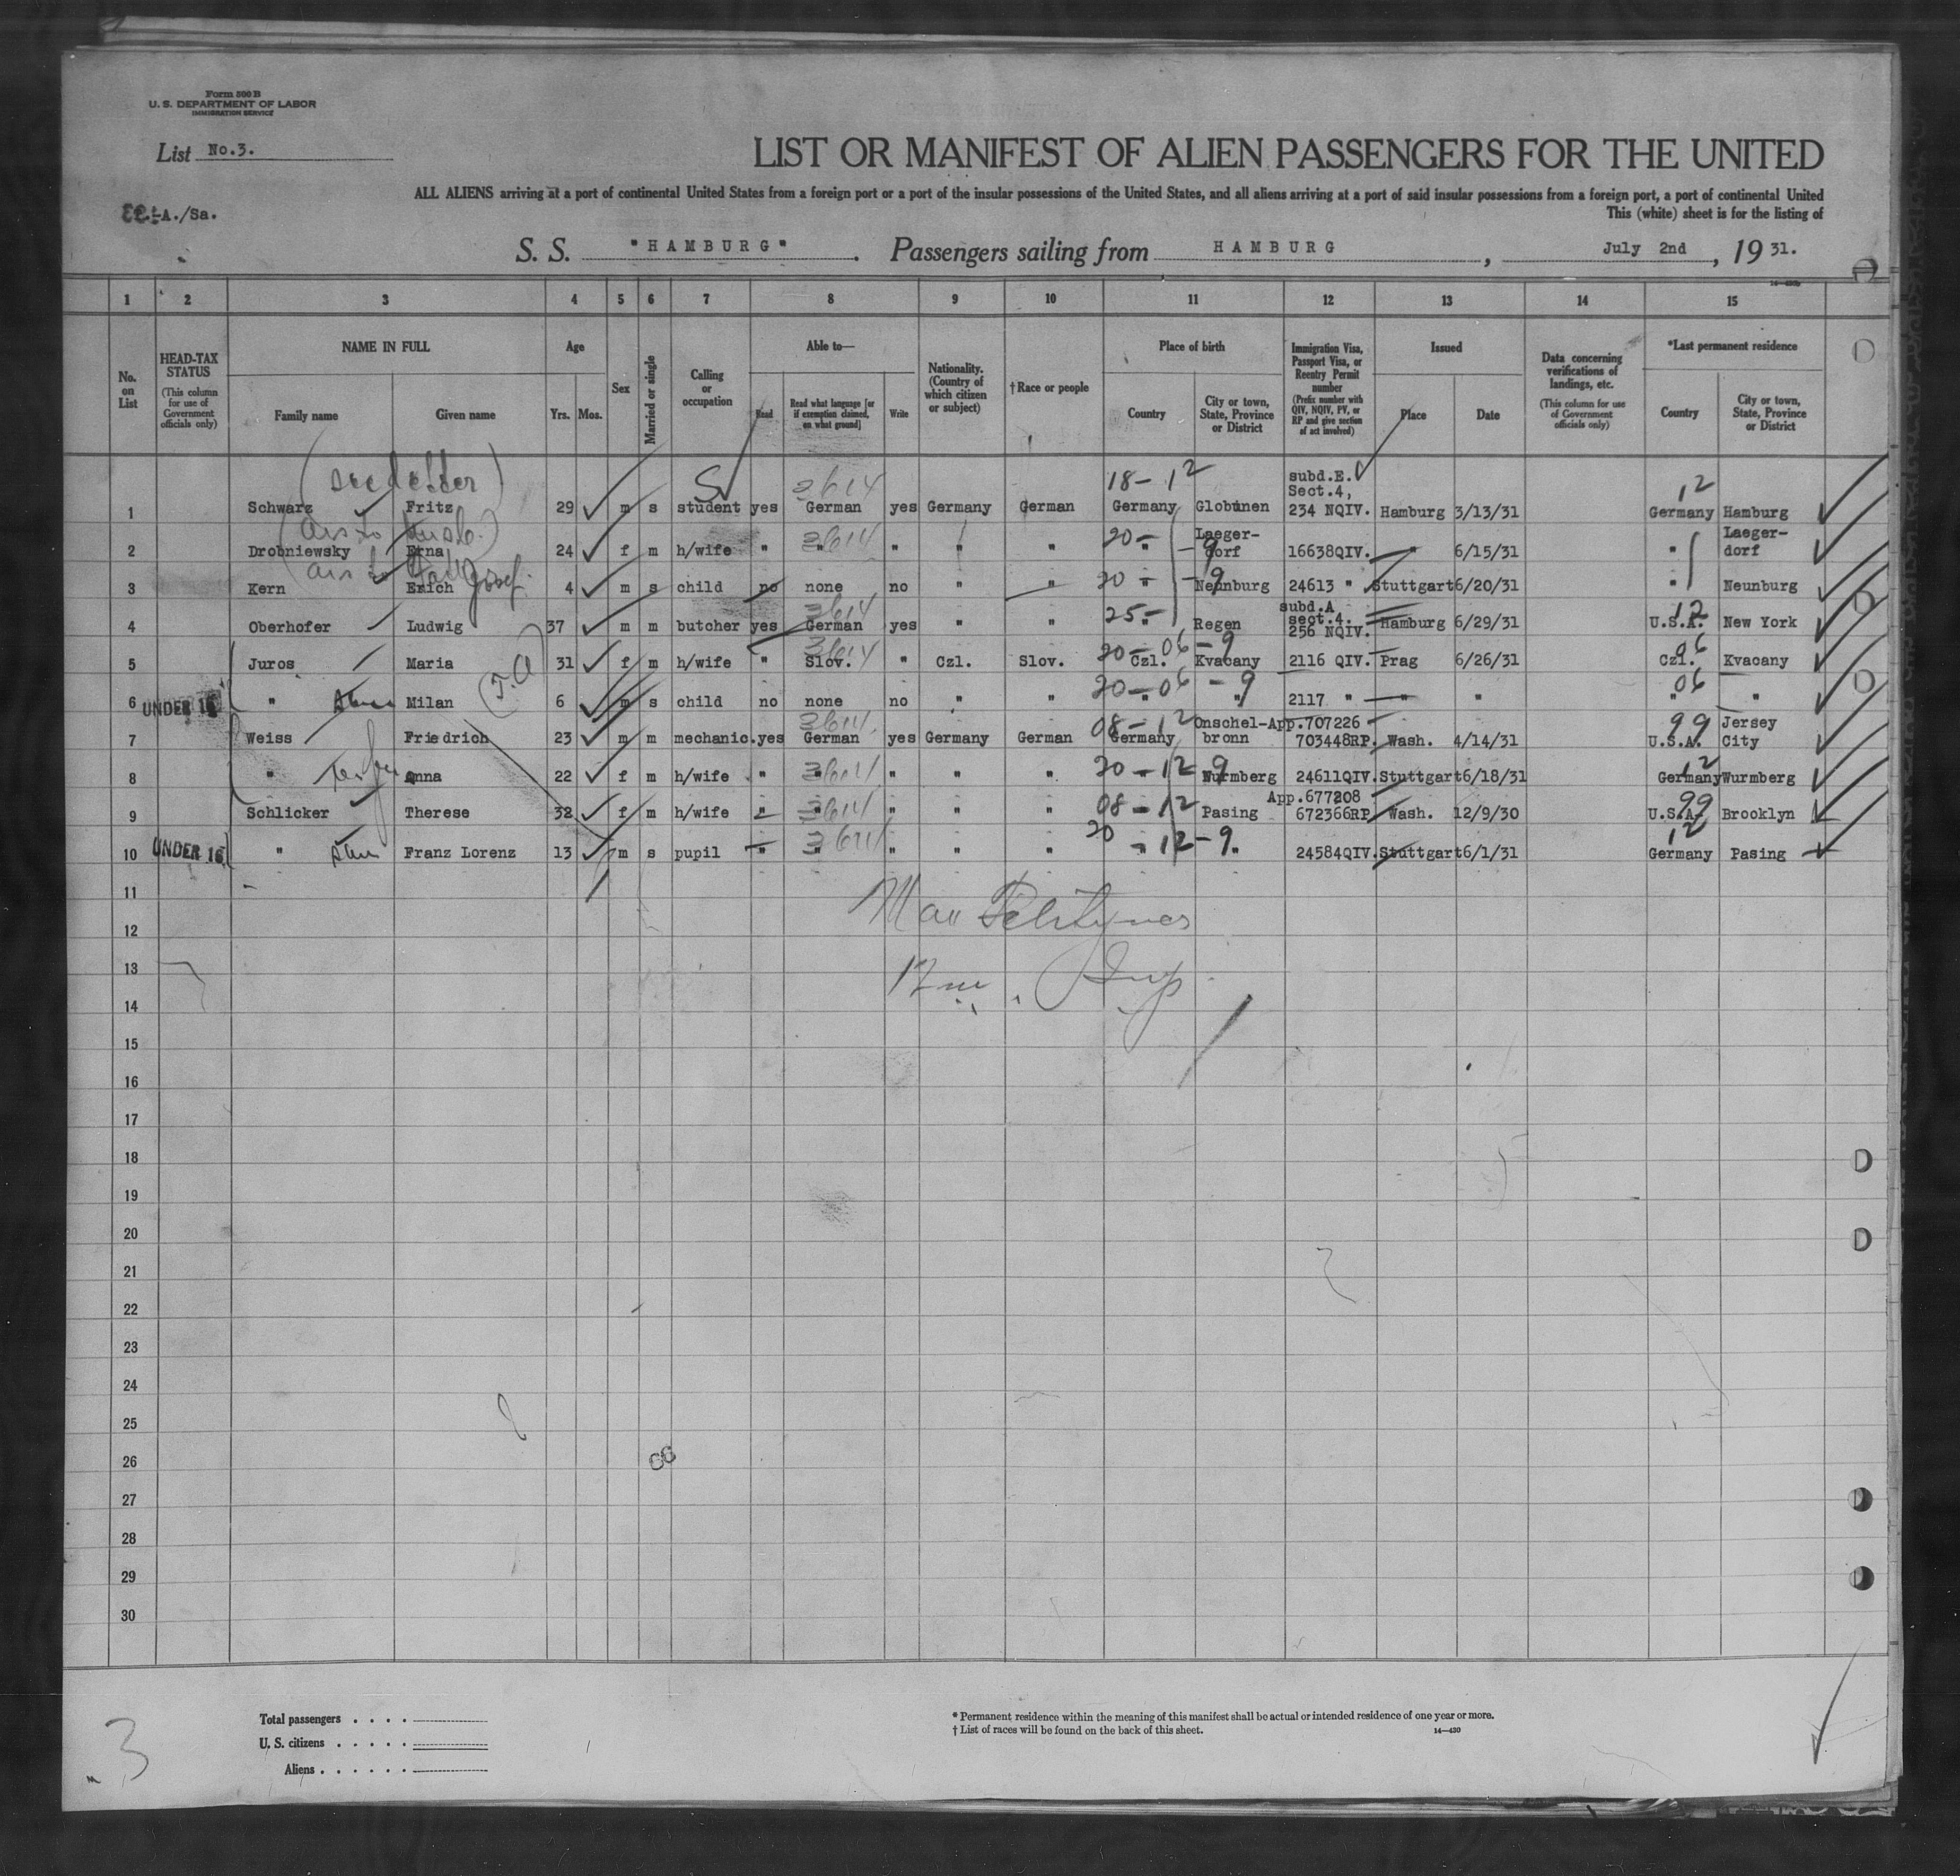 Form 500 B
U. S. DEPARTMENT OF LABOR
IMMIGRATION SERVICE
List No.3.
LIST OR MANIFEST OF ALIEN PASSENGERS FOR THE UNITED
ALL ALIENS arriving at a port of continental United States from a foreign port or a port of the insular possessions of the United States, and all aliens arriving at a port of said insular possessions from a foreign port, a port of continental United
-A./Sa.
This (white) sheet is for the listing of
S. S. "HAMBURG". Passengers sailing from HAMBURG, July 2nd, 19 31.
1 2 3 4 5 6 7 8 9 10 11 12 13 14 15
No. on List
HEAD-TAX STATUS (This column for use of Government officials only)
NAME IN FULL Family name Given name
Age Yrs. Mos.
Sex
Married or single
Calling or occupation
Able to— Read Read what language [or if exemption claimed, on what ground] Write
Nationality. (Country of which citizen or subject)
†Race or people
Place of birth Country City or town, State, Province or District
Immigration Visa, Passport Visa, or Reentry Permit number (Prefix number with QIV, NQIV, PV, or RP and give section of act involved)
Issued Place Date
Data concerning verifications of landings, etc. (This column for use of Government officials only)
*Last permanent residence Country City or town, State, Province or District
18-12 subd.E. Sect.4, 12
1 Schwarz Fritz 29 m s student yes 3614 German yes Germany German Germany Globunen 234 NQIV. Hamburg 3/13/31 Germany Hamburg
2 Drobniewsky Erna 24 f m h/wife " 3614 " " " " 20- " -9 Laegerdorf 16638QIV. " 6/15/31 " Laegerdorf
3 Kern Erich Josef 4 m s child no none no " " 20- " -9 Neunburg 24613 " Stuttgart 6/20/31 " Neunburg
4 Oberhofer Ludwig 37 m m butcher yes 3614 German yes " " 25- " Regen subd.A sect.4. 256 NQIV. Hamburg 6/29/31 12 U.S.A. New York
5 Juros Maria 31 f m h/wife " 3614 Slov. " Czl. Slov. 20-06-9 Czl. Kvacany 2116 QIV. Prag 6/26/31 06 Czl. Kvacany
6 UNDER 16 " Milan 6 m s child no none no " " 20-06-9 " " 2117 " " " 06 " "
7 Weiss Friedrich 23 m m mechanic. yes 3614 German yes Germany German 08-12 Germany Onschelbronn App.707226 703448RP. Wash. 4/14/31 99 U.S.A. Jersey City
8 " Anna 22 f m h/wife " 3614 " " " " 20-12-9 " Wurmberg 24611QIV. Stuttgart 6/18/31 12 Germany Wurmberg
9 Schlicker Therese 32 f m h/wife " 3614 " " " " 08-12 " Pasing App.677208 672366RP Wash. 12/9/30 99 U.S.A. Brooklyn
10 UNDER 16 " Franz Lorenz 13 m s pupil " 3614 " " " " 20-12-9 " " 24584QIV. Stuttgart 6/1/31 12 Germany Pasing
11
12
13
14
15
16
17
18
19
20
21
22
23
24
25
26
27
28
29
30
Total passengers
U. S. citizens
Aliens
* Permanent residence within the meaning of this manifest shall be actual or intended residence of one year or more.
† List of races will be found on the back of this sheet. 14—430
3